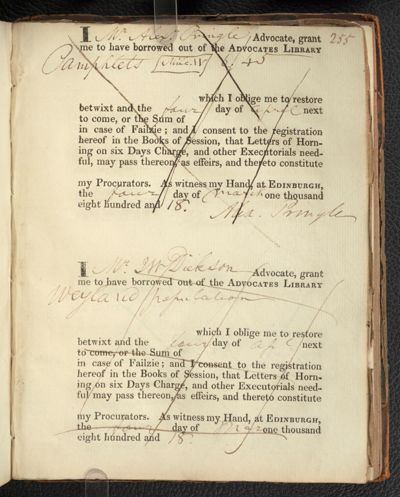 255
I Mr. Alexr Pringle, Advocate, grant
me to have borrowed out of the ADVOCATES LIBRARY
Pamphlets 45
which I oblige me to restore
betwixt and the four day of April next
to come, or the Sum of
in case of Failzie; and I consent to the registration
hereof in the Books of Session, that Letters of Horn-
ing on six Days Charge, and other Executorials need-
ful, may pass thereon, as effeirs, and thereto constitute
my Procurators. As witness my Hand, at EDINBURGH,
the four day of March one thousand
eight hundred and 18. Alex. Pringle
I Mr. JW Dickson Advocate, grant
me to have borrowed out of the ADVOCATES LIBRARY
Weyland population
which I oblige me to restore
betwixt and the four day of April next
to come, or the Sum of
in case of Failzie; and I consent to the registration
hereof in the Books of Session, that Letters of Horn-
ing on six Days Charge, and other Executorials need-
ful may pass thereon, as effeirs, and thereto constitute
my Procurators. As witness my Hand, at EDINBURGH,
the four day of Mar one thousand
eight hundred and 18.